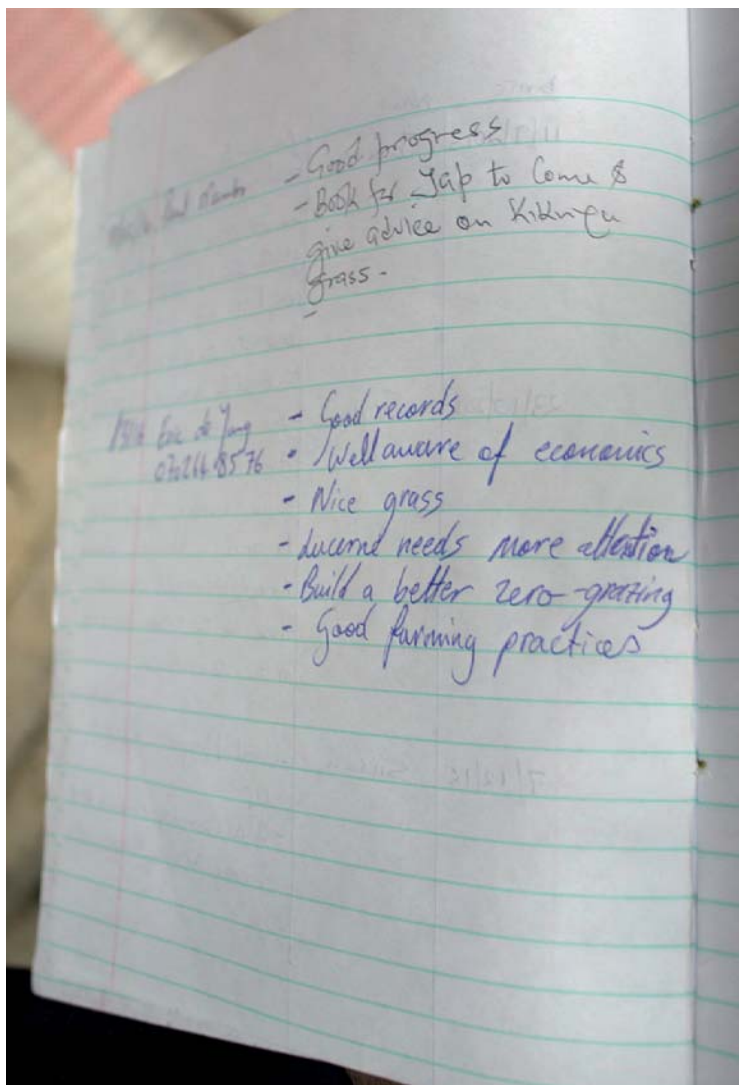 - Good progress
- Book for Jap to Come &
give advice on Kikuyu
grass -
-
Eric de Jong - Good records
- Well aware of economics
- Nice grass
- Lucerne needs more attention
- Build a better zero-grazing
- Good farming practices